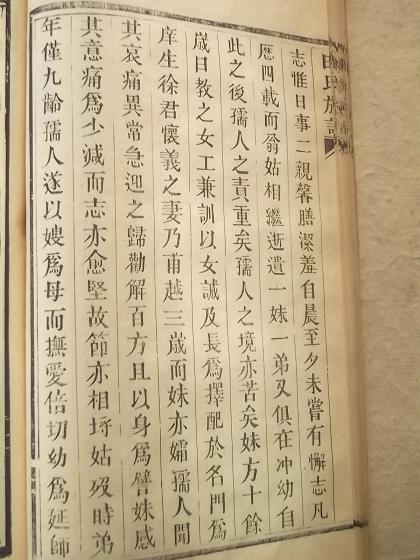 曲氏族譜
志惟日事二親馨膳潔羞自晨至夕未嘗有懈志凡
歷四載而翁姑相繼逝遺一妹一弟又俱在冲幼自
此之後孺人之責重矣孺人之境亦苦矣妹方十餘
歲日教之女工兼訓以女誡及長爲擇配於名門爲
庠生徐君懷義之妻乃甫越三歲而妹亦孀孺人聞
其哀痛異常急迎之歸勸解百方且以身爲譬妹感
其意痛爲少減而志亦愈堅故節亦相埒姑歿時弟
年僅九齡孺人遂以嫂爲母而撫愛倍切幼爲延師